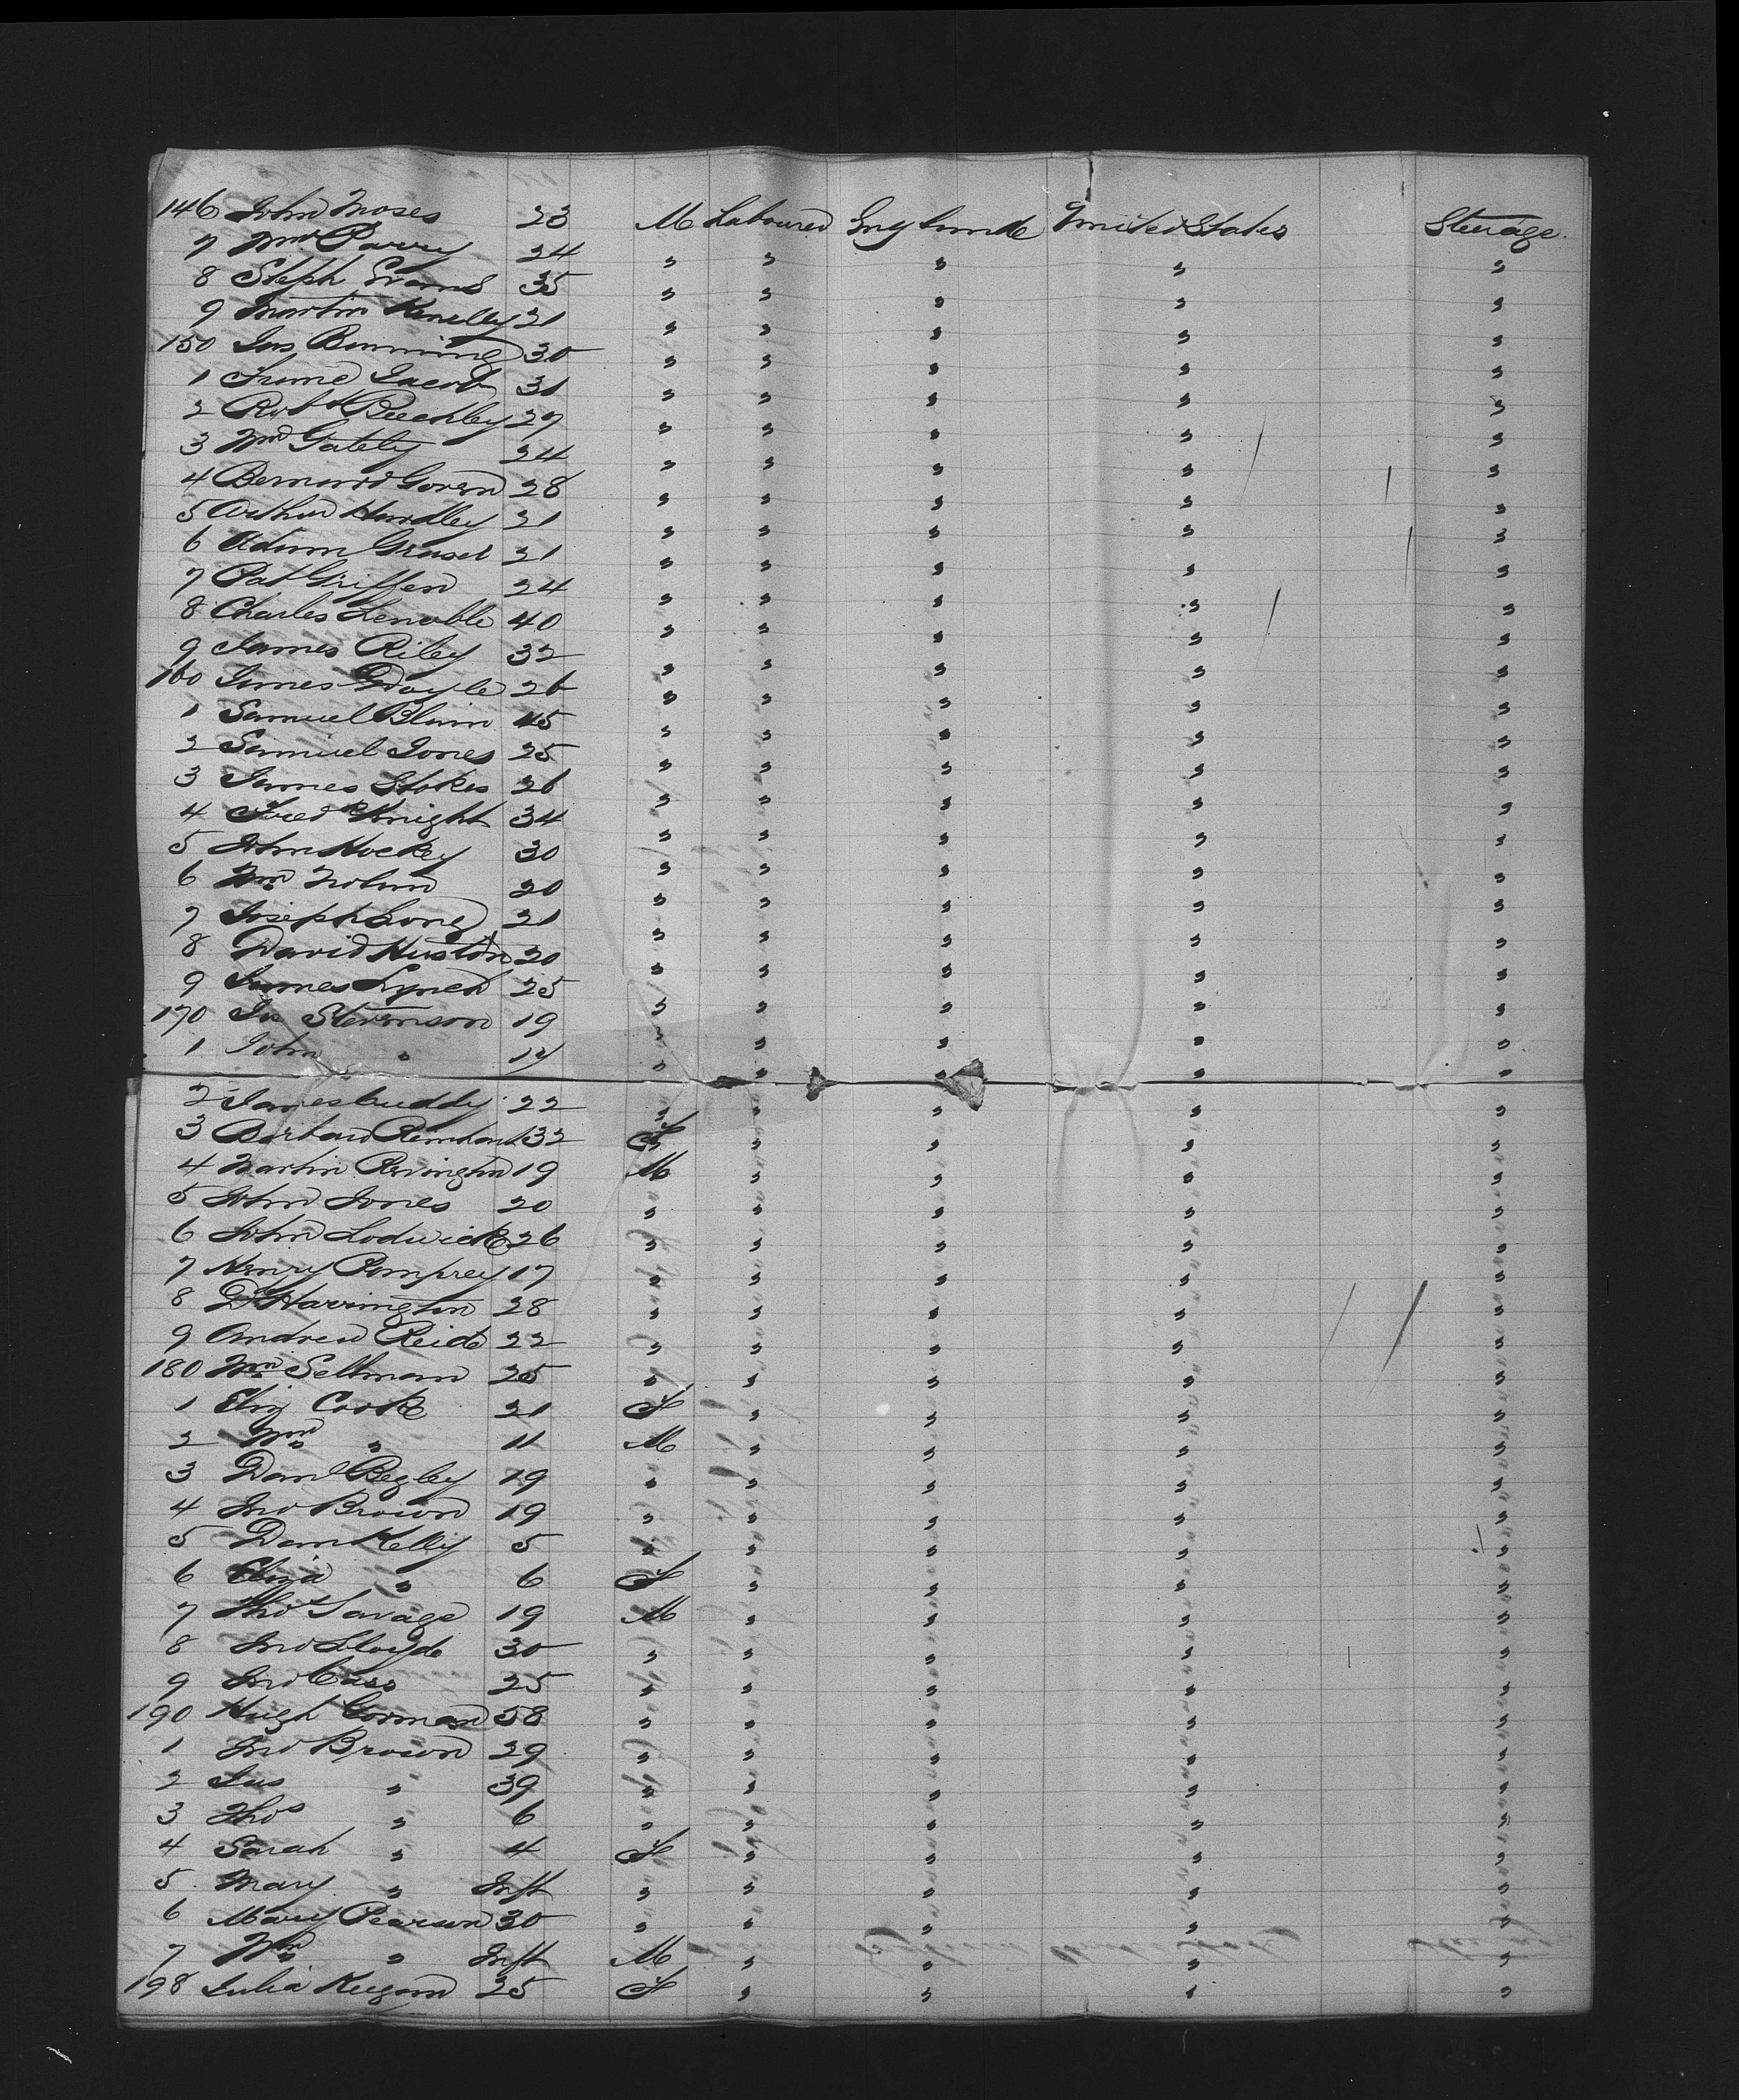 146 John Moses 23 M Laboured England United States Steerage.
7 Wm Parry 24 " " " " "
8 Steph Evans 35 " " " " "
9 Martin Kenelley 21 " " " " "
150 Jas Bunning 30 " " " " "
1 Jacob 31 " " " " "
2 Robt Beechley 29 " " " " "
3 Wm Gately 24 " " " " "
4 Bernard Govern 28 " " " " "
5 Arthur Handley 21 " " " " "
6 Adam Graser 21 " " " " "
7 Pat Griffen 24 " " " " "
8 Charles Lenoble 40 " " " " "
9 James Riley 32 " " " " "
160 James Doyle 26 " " " " "
1 Samuel Blain 45 " " " " "
2 Samuel Jones 25 " " " " "
3 James Stokes 26 " " " " "
4 Fred Knight 34 " " " " "
5 John Hockey 30 " " " " "
6 Wm Nolan 20 " " " " "
7 Joseph Long 21 " " " " "
8 David Huston 20 " " " " "
9 James Lynch 25 " " " " "
170 Jas Stevenson 19 " " " " "
1 John " 17 " " " " "
2 James Cuddy 22 " " " " "
3 32 F " " " "
4 Martin Revington 19 M " " " "
5 John Jones 20 " " " " "
6 John Lodwick 26 " " " " "
7 Henry Pomprey 17 " " " " "
8 D Harrington 28 " " " " "
9 Andrew Reid 22 " " " " "
180 Wm Sellman 25 " " " " "
1 Eliz Cook 21 F " " " "
2 Wm " 11 M " " " "
3 Danl Begley 19 " " " " "
4 Jno Brown 19 " " " " "
5 Dan Kelly 5 " " " " "
6 Eliza " 6 F " " " "
7 Thos Savage 19 M " " " "
8 Jno Lloyd 30 " " " " "
9 Jno Cass 25 " " " " "
190 Hugh Gorman 58 " " " " "
1 Jno Brown 29 " " " " "
2 Jas " 39 " " " " "
3 Thos " 6 " " " " "
4 Sarah " 4 F " " " "
5 Mary " Inft " " " " "
6 Mary Pearson 30 " " " " "
7 Wm " Inft M " " " "
198 Julia Keegan 25 F " " " "